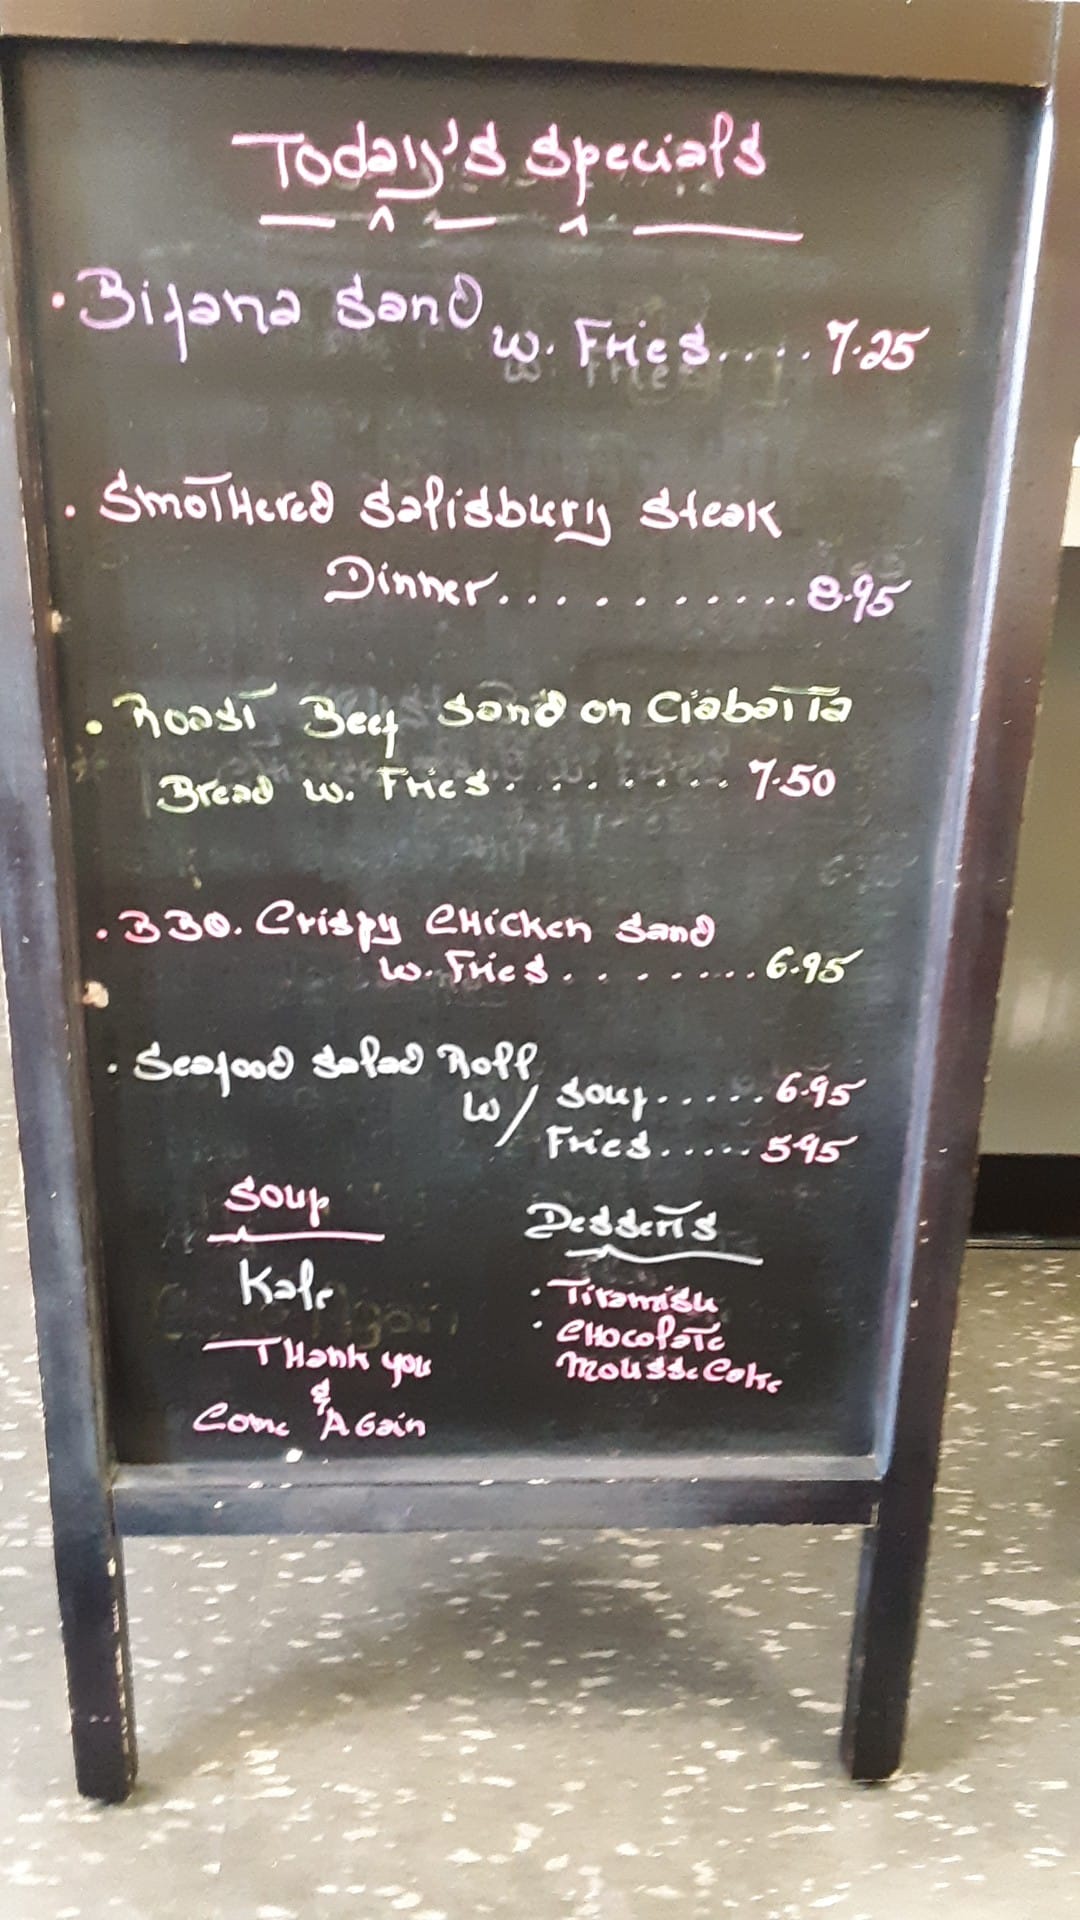 Today's Specials
• Bifana Sand
w. Fries.... 7.25
• Smothered Salisbury Steak
Dinner........... 8.95
• Roast Beef Sand on Ciabatta
Bread w. Fries........ 7.50
• BBQ. Crispy Chicken Sand
w. Fries........ 6.95
• Seafood Salad Roll
w/ Soup..... 6.95
Fries..... 5.95
Soup
Kale
Thank you
&
Come Again
Desserts
• Tiramisu
• Chocolate
Mousse Cake